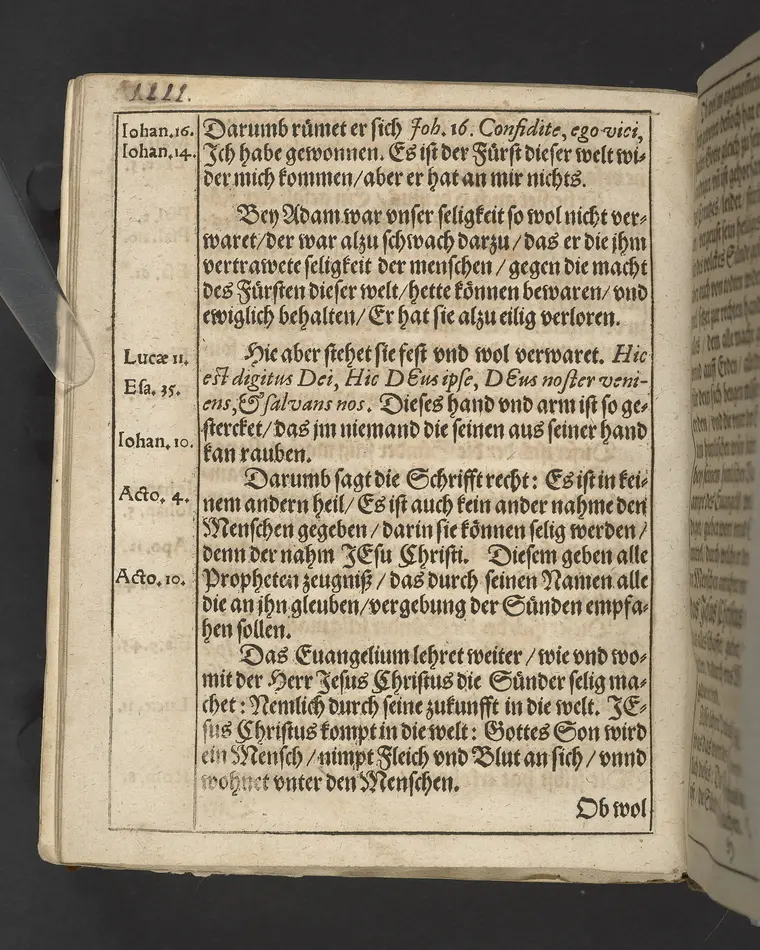 1111.
Iohan.16. Darumb rümet er sich Joh. 16. Confidite, ego vici,
Iohan.14. Ich habe gewonnen. Es ist der Fürst dieser welt wi⸗
der mich kommen/aber er hat an mir nichts.
Bey Adam war vnser seligkeit so wol nicht ver⸗
waret/der war alzu schwach darzu/das er die jhm
vertrawete seligkeit der menschen/gegen die macht
des Fürsten dieser welt/hette können bewaren/vnd
ewiglich behalten/Er hat sie alzu eilig verloren.
Lucæ 11. Hie aber stehet sie fest vnd wol verwaret. Hic
Esa. 35. est digitus Dei, Hic DEus ipse, DEus noster veni-
ens,& salvans nos. Dieses hand vnd arm ist so ge⸗
Iohan. 10. stercket/das jm niemand die seinen aus seiner hand
kan rauben.
Darumb sagt die Schrifft recht: Es ist in kei⸗
Acto. 4. nem andern heil/Es ist auch kein ander nahme den
Menschen gegeben/darin sie können selig werden/
denn der nahm JEsu Christi. Diesem geben alle
Acto. 10. Propheten zeugniß/das durch seinen Namen alle
die an jhn gleuben/vergebung der Sünden empfa⸗
hen sollen.
Das Euangelium lehret weiter/wie vnd wo⸗
mit der Herr Jesus Christus die Sünder selig ma⸗
chet: Nemlich durch seine zukunfft in die welt. JE⸗
sus Christus kompt in die welt: Gottes Son wird
ein Mensch/nimpt Fleich vnd Blut an sich/vnnd
wohnet vnter den Menschen.
Ob wol